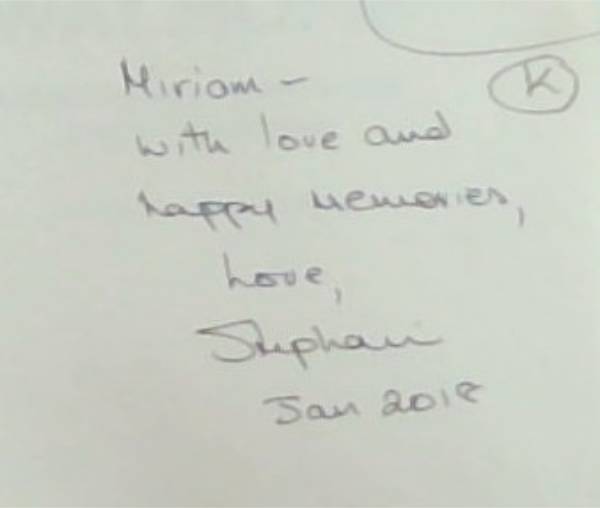 Miriam –
K
with love and
happy memories,
Love,
Stephani
Jan 2018